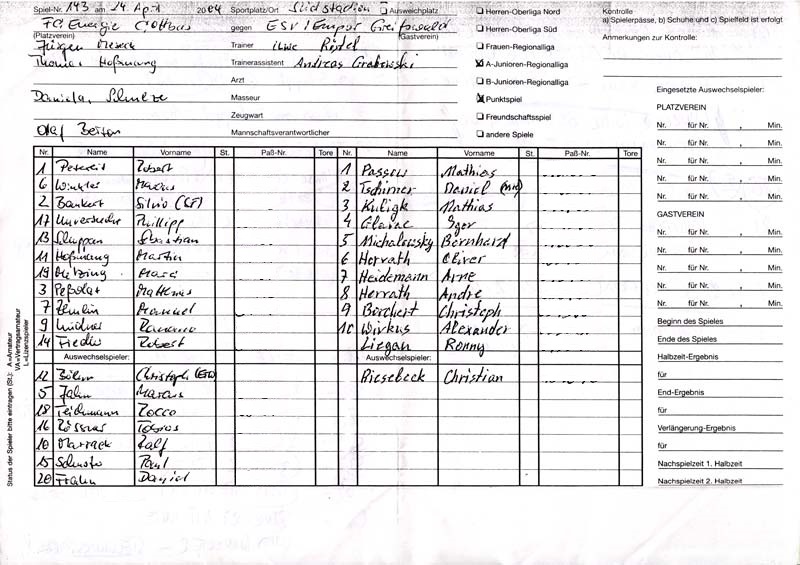 Spiel-Nr. 143 am 24. April 2004 Sportplatz/Ort Südstadion Ausweichplatz
FC Energie Cottbus gegen ESV/Empor Greifswald
(Platzverein) (Gastverein)
Jürgen Meseck Trainer Uwe
Thomas Hoßmang Trainerassistent Andreas Grabowski
Arzt
Daniela Schulze Masseur
Zeugwart
Olaf Mannschaftsverantwortlicher
Herren-Oberliga Nord
Herren-Oberliga Süd
Frauen-Regionalliga
A-Junioren-Regionalliga
B-Junioren-Regionalliga
Punktspiel
Freundschaftsspiel
andere Spiele
Kontrolle
a) Spielerpässe, b) Schuhe und c) Spielfeld ist erfolgt
Anmerkungen zur Kontrolle:
Nr. Name Vorname St. Paß-Nr. Tore Nr. Name Vorname St. Paß-Nr. Tore
1 Petereit Robert 1 Passow Mathias
6 Winkler Marcus 2 Tschirner Daniel
2 Bankert Silvio 3 Kuligk Mathias
17 Phillipp 4 Igor
13 Sebastian 5 Michalowsky Bernhard
11 Hoßmang Martin 6 Horvath Oliver
19 Marc 7 Heidemann Arne
3 Mattheus 8 Horvath Andre
7 Manuel 9 Borchert Christoph
9 10 Wirkus Alexander
14 Fiedler Robert Liegan Ronny
Auswechselspieler: Auswechselspieler:
12 Böhm Christoph (ETW) Riesebeck Christian
5 Jahn Marcus
18 Teichmann Rocco
16 Tobias
10 Ralf
15 Schuster Paul
20 Frahn Daniel
Status der Spieler bitte eintragen (St.): A=Amateur
VA=Vertragsamateur
L=Lizenzspieler
Eingesetzte Auswechselspieler:
PLATZVEREIN
Nr. für Nr. , Min.
Nr. für Nr. , Min.
Nr. für Nr. , Min.
Nr. für Nr. , Min.
Nr. für Nr. , Min.
GASTVEREIN
Nr. für Nr. , Min.
Nr. für Nr. , Min.
Nr. für Nr. , Min.
Nr. für Nr. , Min.
Nr. für Nr. , Min.
Beginn des Spieles
Ende des Spieles
Halbzeit-Ergebnis
für
End-Ergebnis
für
Verlängerung-Ergebnis
für
Nachspielzeit 1. Halbzeit
Nachspielzeit 2. Halbzeit